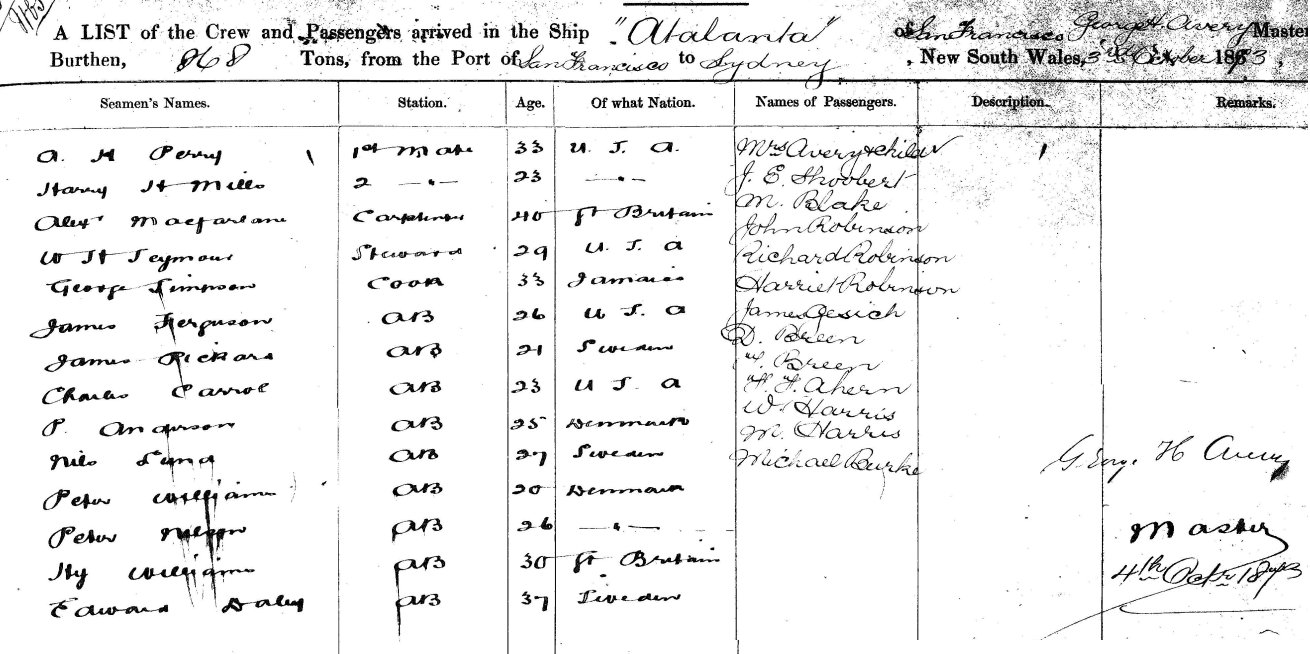 A LIST of the Crew and Passengers arrived in the Ship "Atalanta" of San Francisco George H. Avery Master
Burthen, 868 Tons, from the Port of San Francisco to Sydney, New South Wales, 3rd October 1873,
Seamen's Names. Station. Age. Of what Nation. Names of Passengers. Description. Remarks.
A. H Perry 1st Mate 33 U. S. A. Mrs Avery & child
Harry H Mills 2 —"— 23 —"— J. E. Shoobert
M. Blake
Alexr Macfarlane Carpenter 40 Gt Britain John Robinson
W H Seymour Steward 29 U. S. A Richard Robinson
George Simpson Cook 33 Jamaica Harriet Robinson
James Ferguson AB 26 U S. A James Gesich
D. Breen
James Rickard AB 21 Sweden Breen
Charles Carrol AB 23 U S. A Ahern
W. Harris
P. Anderson AB 25 Denmark M. Harris
Nils Lund AB 27 Sweden Michael Burke George H Avery
Peter Williams AB 20 Denmark
Peter Nelson AB 26 —"— Master
Hy Williams AB 30 Gt Britain 4th Octr 1873
Edward Daley AB 37 Sweden